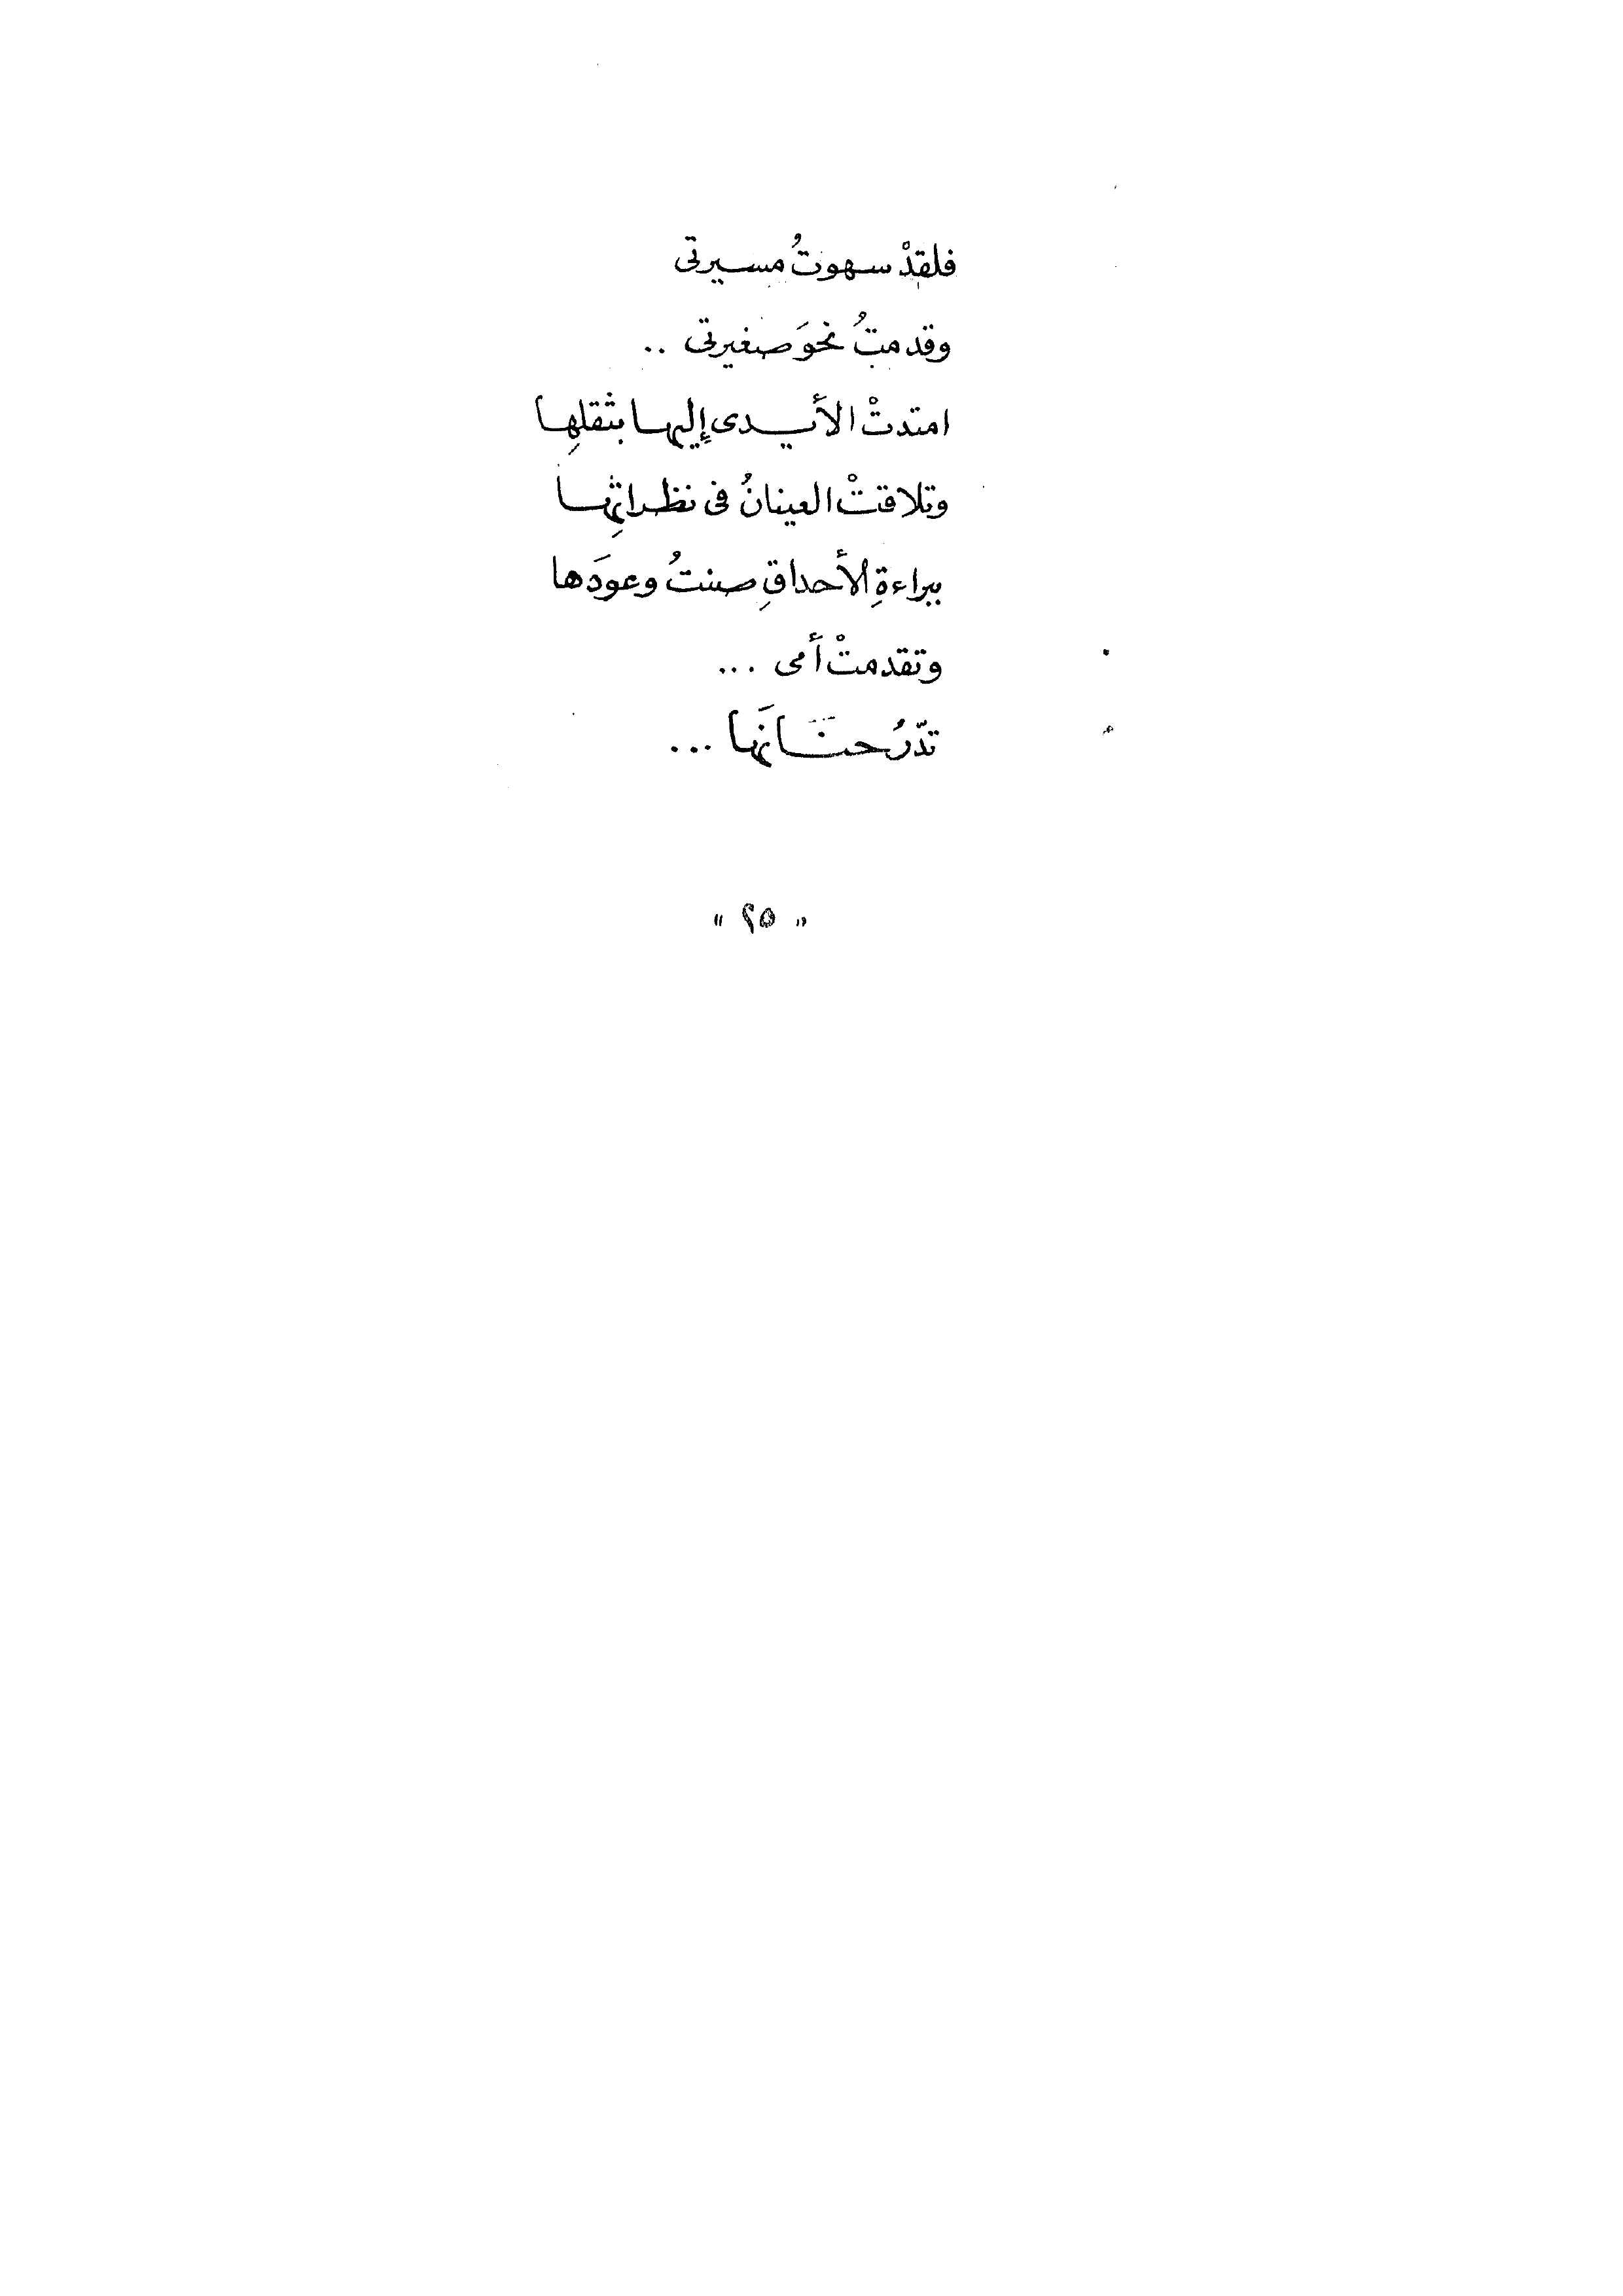 فلقدْ سهوتُ مسيرتى
وقدمتُ نحوَ صغيرتى ..
امتدتْ الأيدى إليها بثقلِها
وتلاقتْ العينانُ فى نظراتِها
ببراءةِ الأحداقِ صنتُ وعودَها
وتقدمتْ أمى ...
تدّرُ حنانَها ...
« ٢٥ »